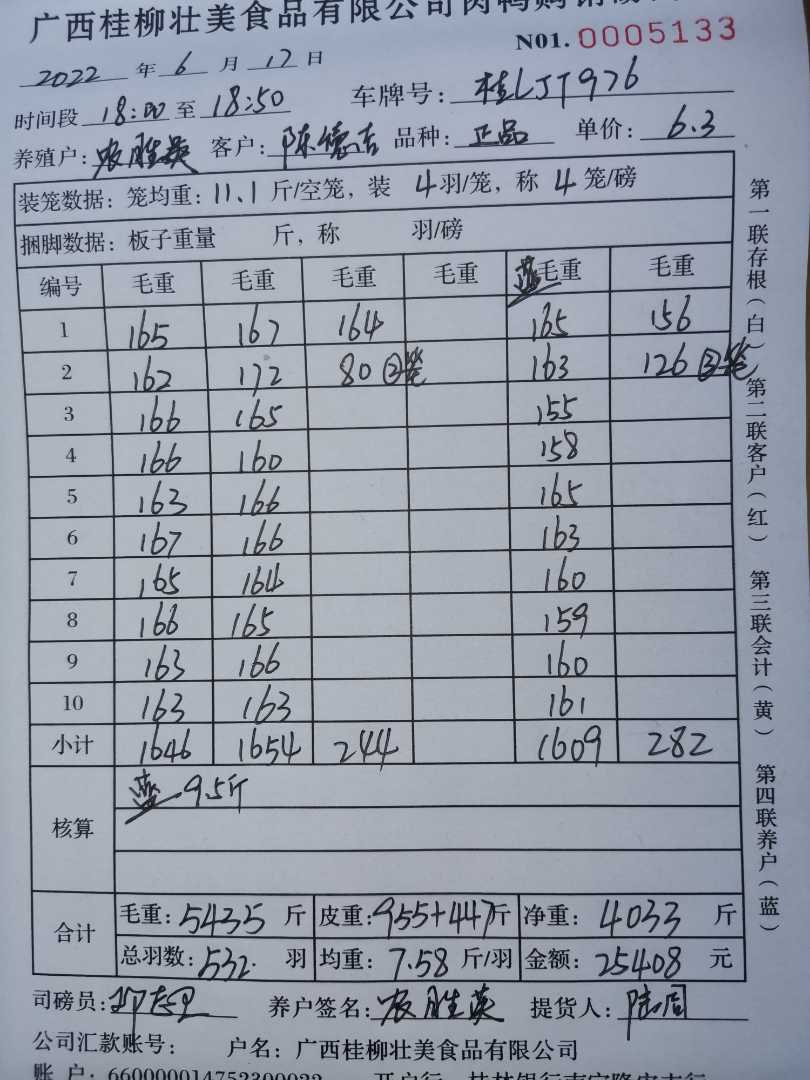 广西桂柳壮美食品有限公司肉鸭购销
N01. 0005133
2022 年 6 月 17 日
时间段 18:00 至 18:50 车牌号: 桂LJT976
养殖户: 农胜英 客户: 陈德吉 品种: 正品 单价: 6.3
装笼数据: 笼均重: 11.1 斤/空笼, 装 4 羽/笼, 称 4 笼/磅
捆脚数据: 板子重量 斤, 称 羽/磅
编号 毛重 毛重 毛重 毛重 蓝 毛重 毛重
1 165 167 164 165 156
2 162 172 80 ②笼 163 126 ③笼
3 166 165 155
4 166 160 158
5 163 166 165
6 167 166 163
7 165 164 160
8 166 165 159
9 163 166 160
10 163 163 161
小计 1646 1654 244 1609 282
核算 蓝 9.5斤
合计 毛重: 5435 斤 皮重: 955+447斤 净重: 4033 斤
总羽数: 532. 羽 均重: 7.58 斤/羽 金额: 25408 元
司磅员: 养户签名: 农胜英 提货人:
公司汇款账号: 户名: 广西桂柳壮美食品有限公司
账 户: 660000014752300022 开户行: 桂林银行南宁隆安支行
第一联存根(白) 第二联客户(红) 第三联会计(黄) 第四联养户(蓝)